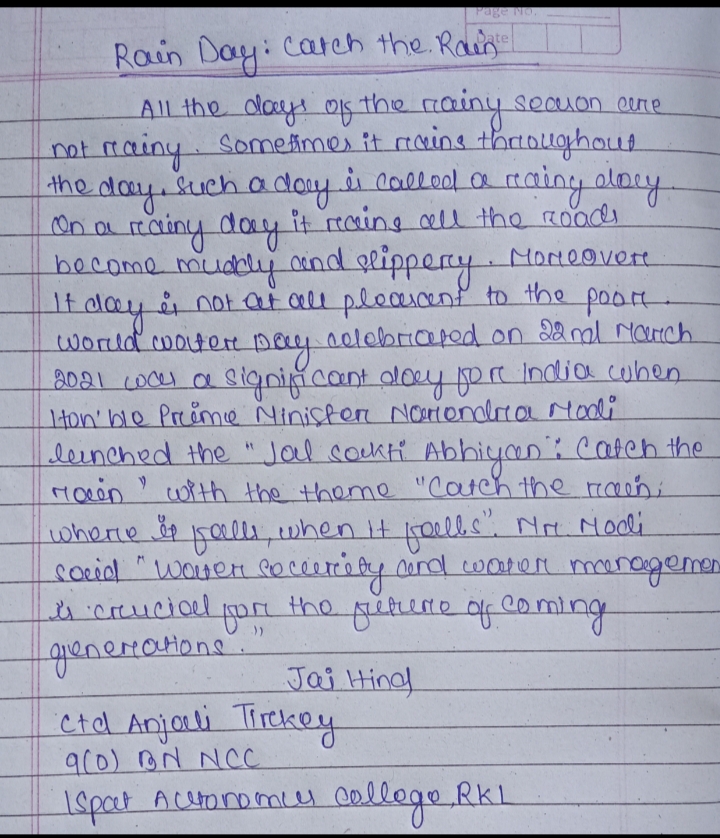 Page No.
Date
Rain Day: Catch the Rain
All the days of the rainy season are
not rainy. Sometimes it rains throughout
the day. Such a day is called a rainy day.
On a rainy day it rains all the roads
become muddy and slippery. Moreover
It day is not at all pleasant to the poor.
World water Day celebrated on 22nd March
2021 was a significant day for India when
Hon'ble Prime Minister Narendra Modi
launched the "Jal sakti Abhiyan": Catch the
rain" with the theme "Catch the rain;
where it falls, when it falls". Mr Modi
said "Water security and water managemen
is crucial for the future of coming
generations."
Jai Hind
Ctd Anjali Tirkey
9(O) BN NCC
Ispat Autonomus College, RKL